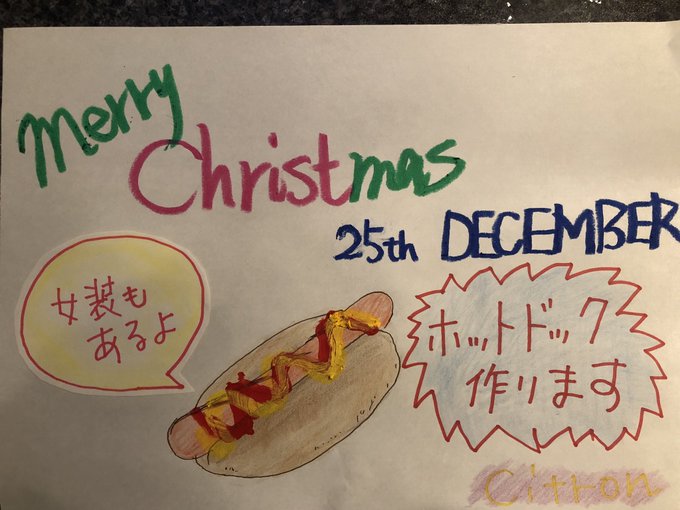 merry
Christmas
25th DECEMBER
女装も
あるよ
ホットドック
作ります
Citron